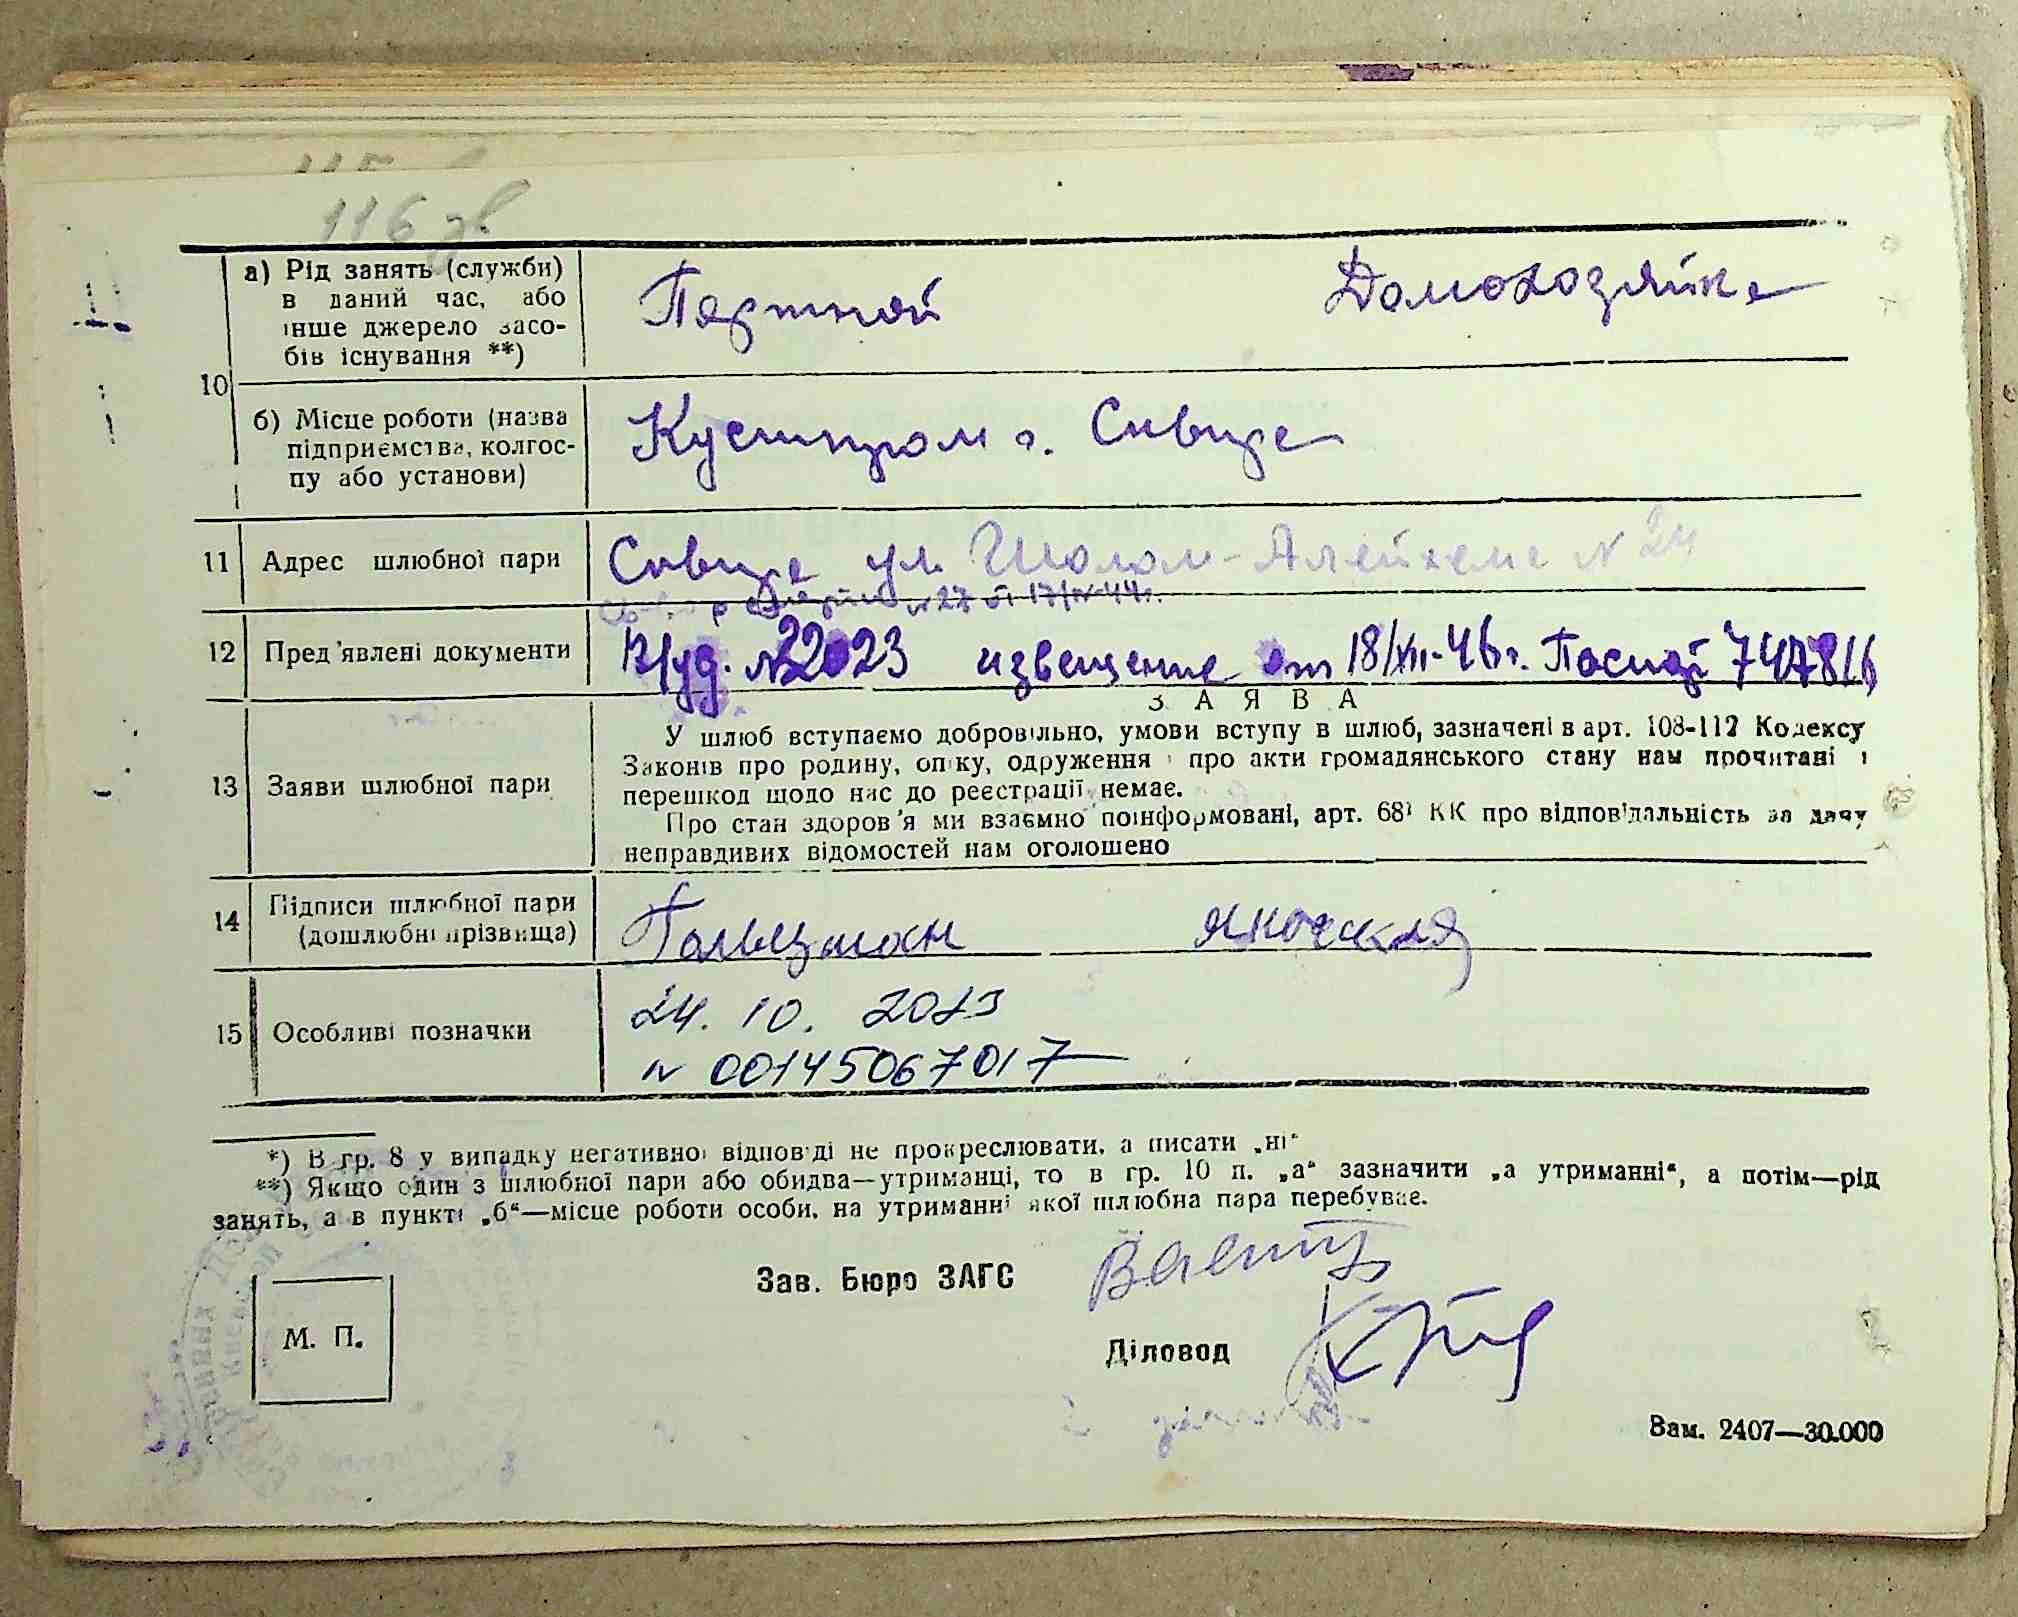 116 зв
10
а) Рід занять (служби) в даний час, або інше джерело засобів існування **)
Портной Домохозяйка
б) Місце роботи (назва підприємства, колгоспу або установи)
Кустпром г. Сквира
11 Адрес шлюбної пари
Сквира ул. Шолом-Алейхема N 24
N 27 от 17/IV-44г.
12 Пред'явлені документи
В/уд. №22023 извещение от 18/XII-46г. Паспорт 747816
З А Я В А
13 Заяви шлюбної пари
У шлюб вступаємо добровільно, умови вступу в шлюб, зазначені в арт. 108-112 Кодексу
Законів про родину, опіку, одруження і про акти громадянського стану нам прочитані і
перешкод щодо нас до реєстрації немає.
Про стан здоров'я ми взаємно поінформовані, арт. 68¹ КК про відповідальність за дачу
неправдивих відомостей нам оголошено
14 Підписи шлюбної пари (дошлюбні прізвища)
Гольцман
15 Особливі позначки
24. 10. 2023
N 00145067017
*) В гр. 8 у випадку негативної відповіді не прокреслювати, а писати „ні“
**) Якщо один з шлюбної пари або обидва—утриманці, то в гр. 10 п. „а“ зазначити „а утриманні“, а потім—рід
занять, а в пункті „б“—місце роботи особи, на утриманні якої шлюбна пара перебуває.
Зав. Бюро ЗАГС
М. П.
Діловод
Зам. 2407—30.000